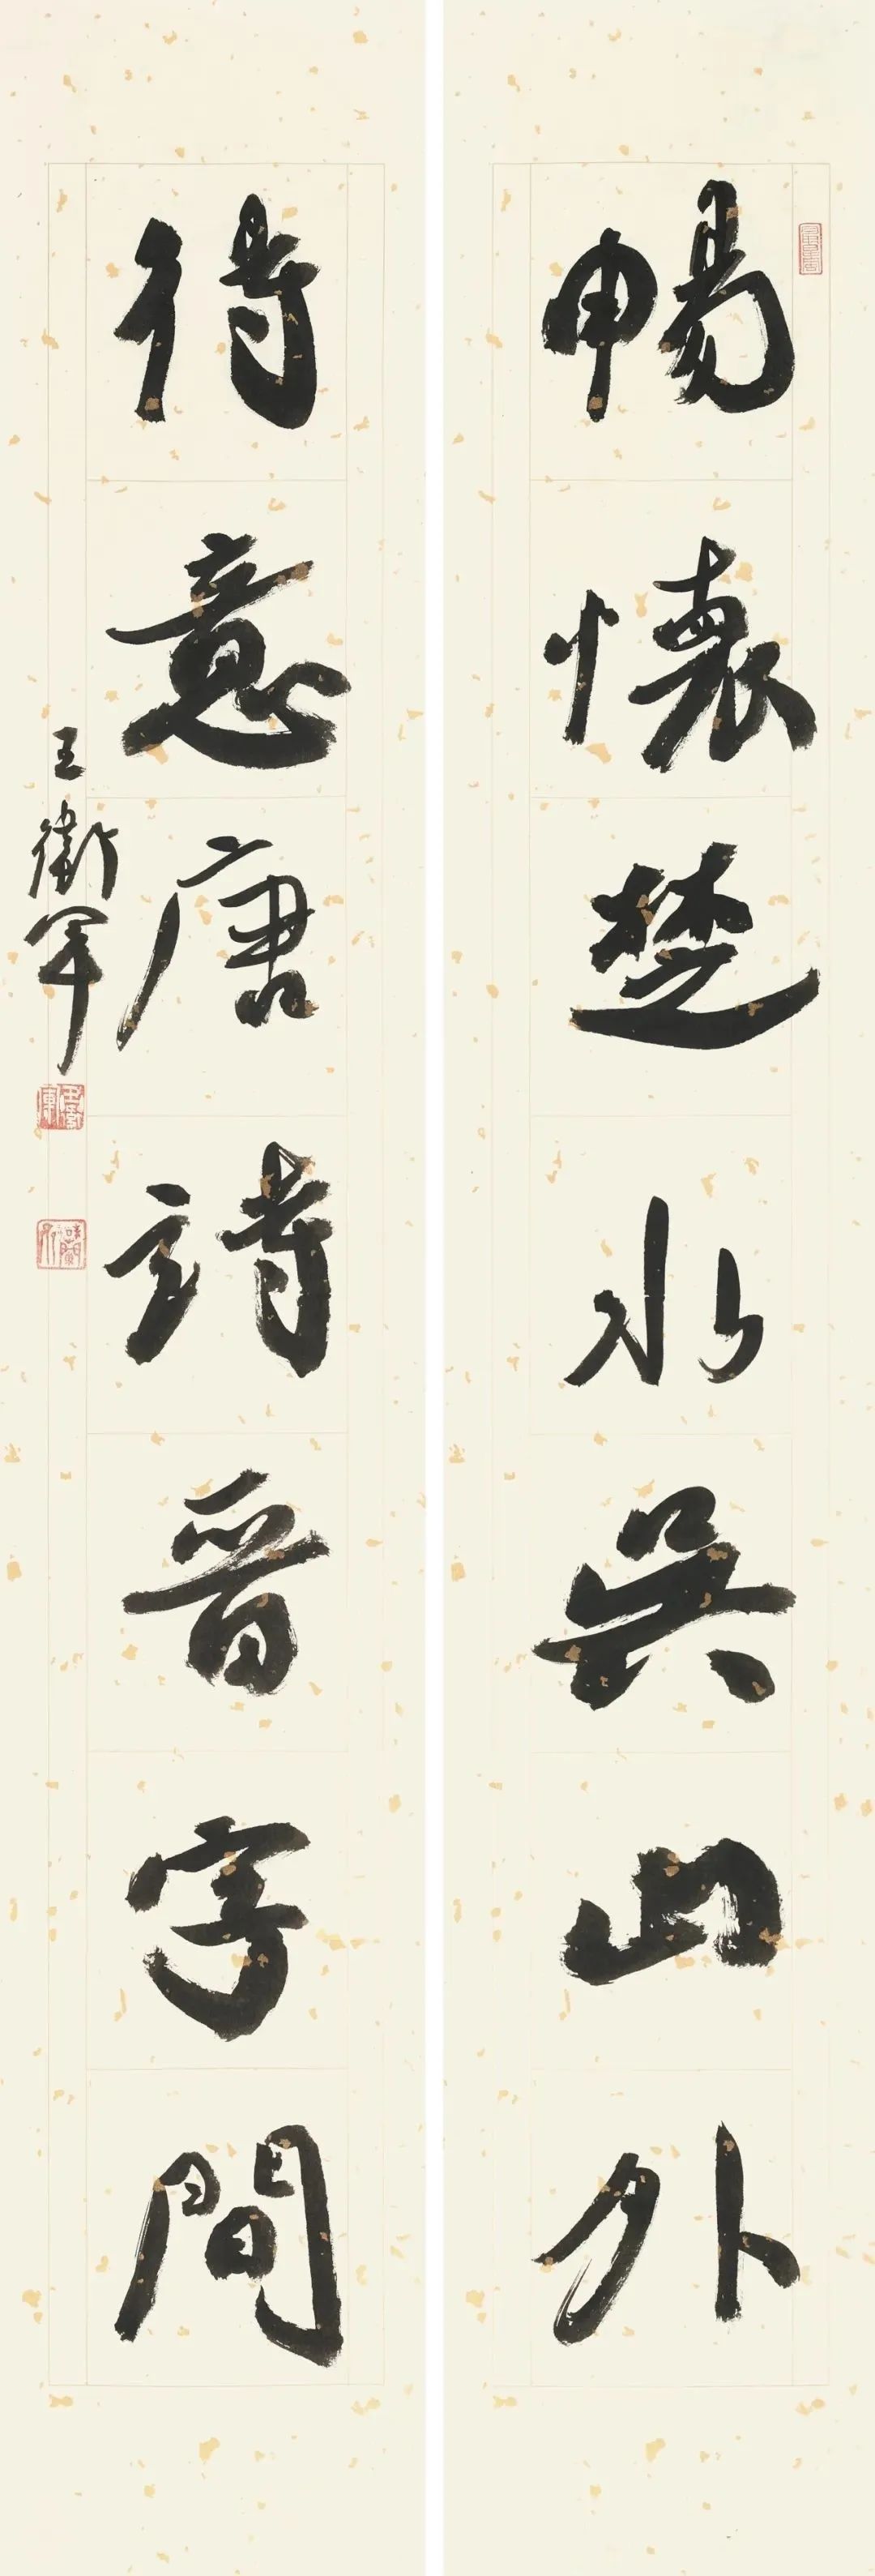 暢懷楚水吳山外
得意唐詩晉字間
王衛軍